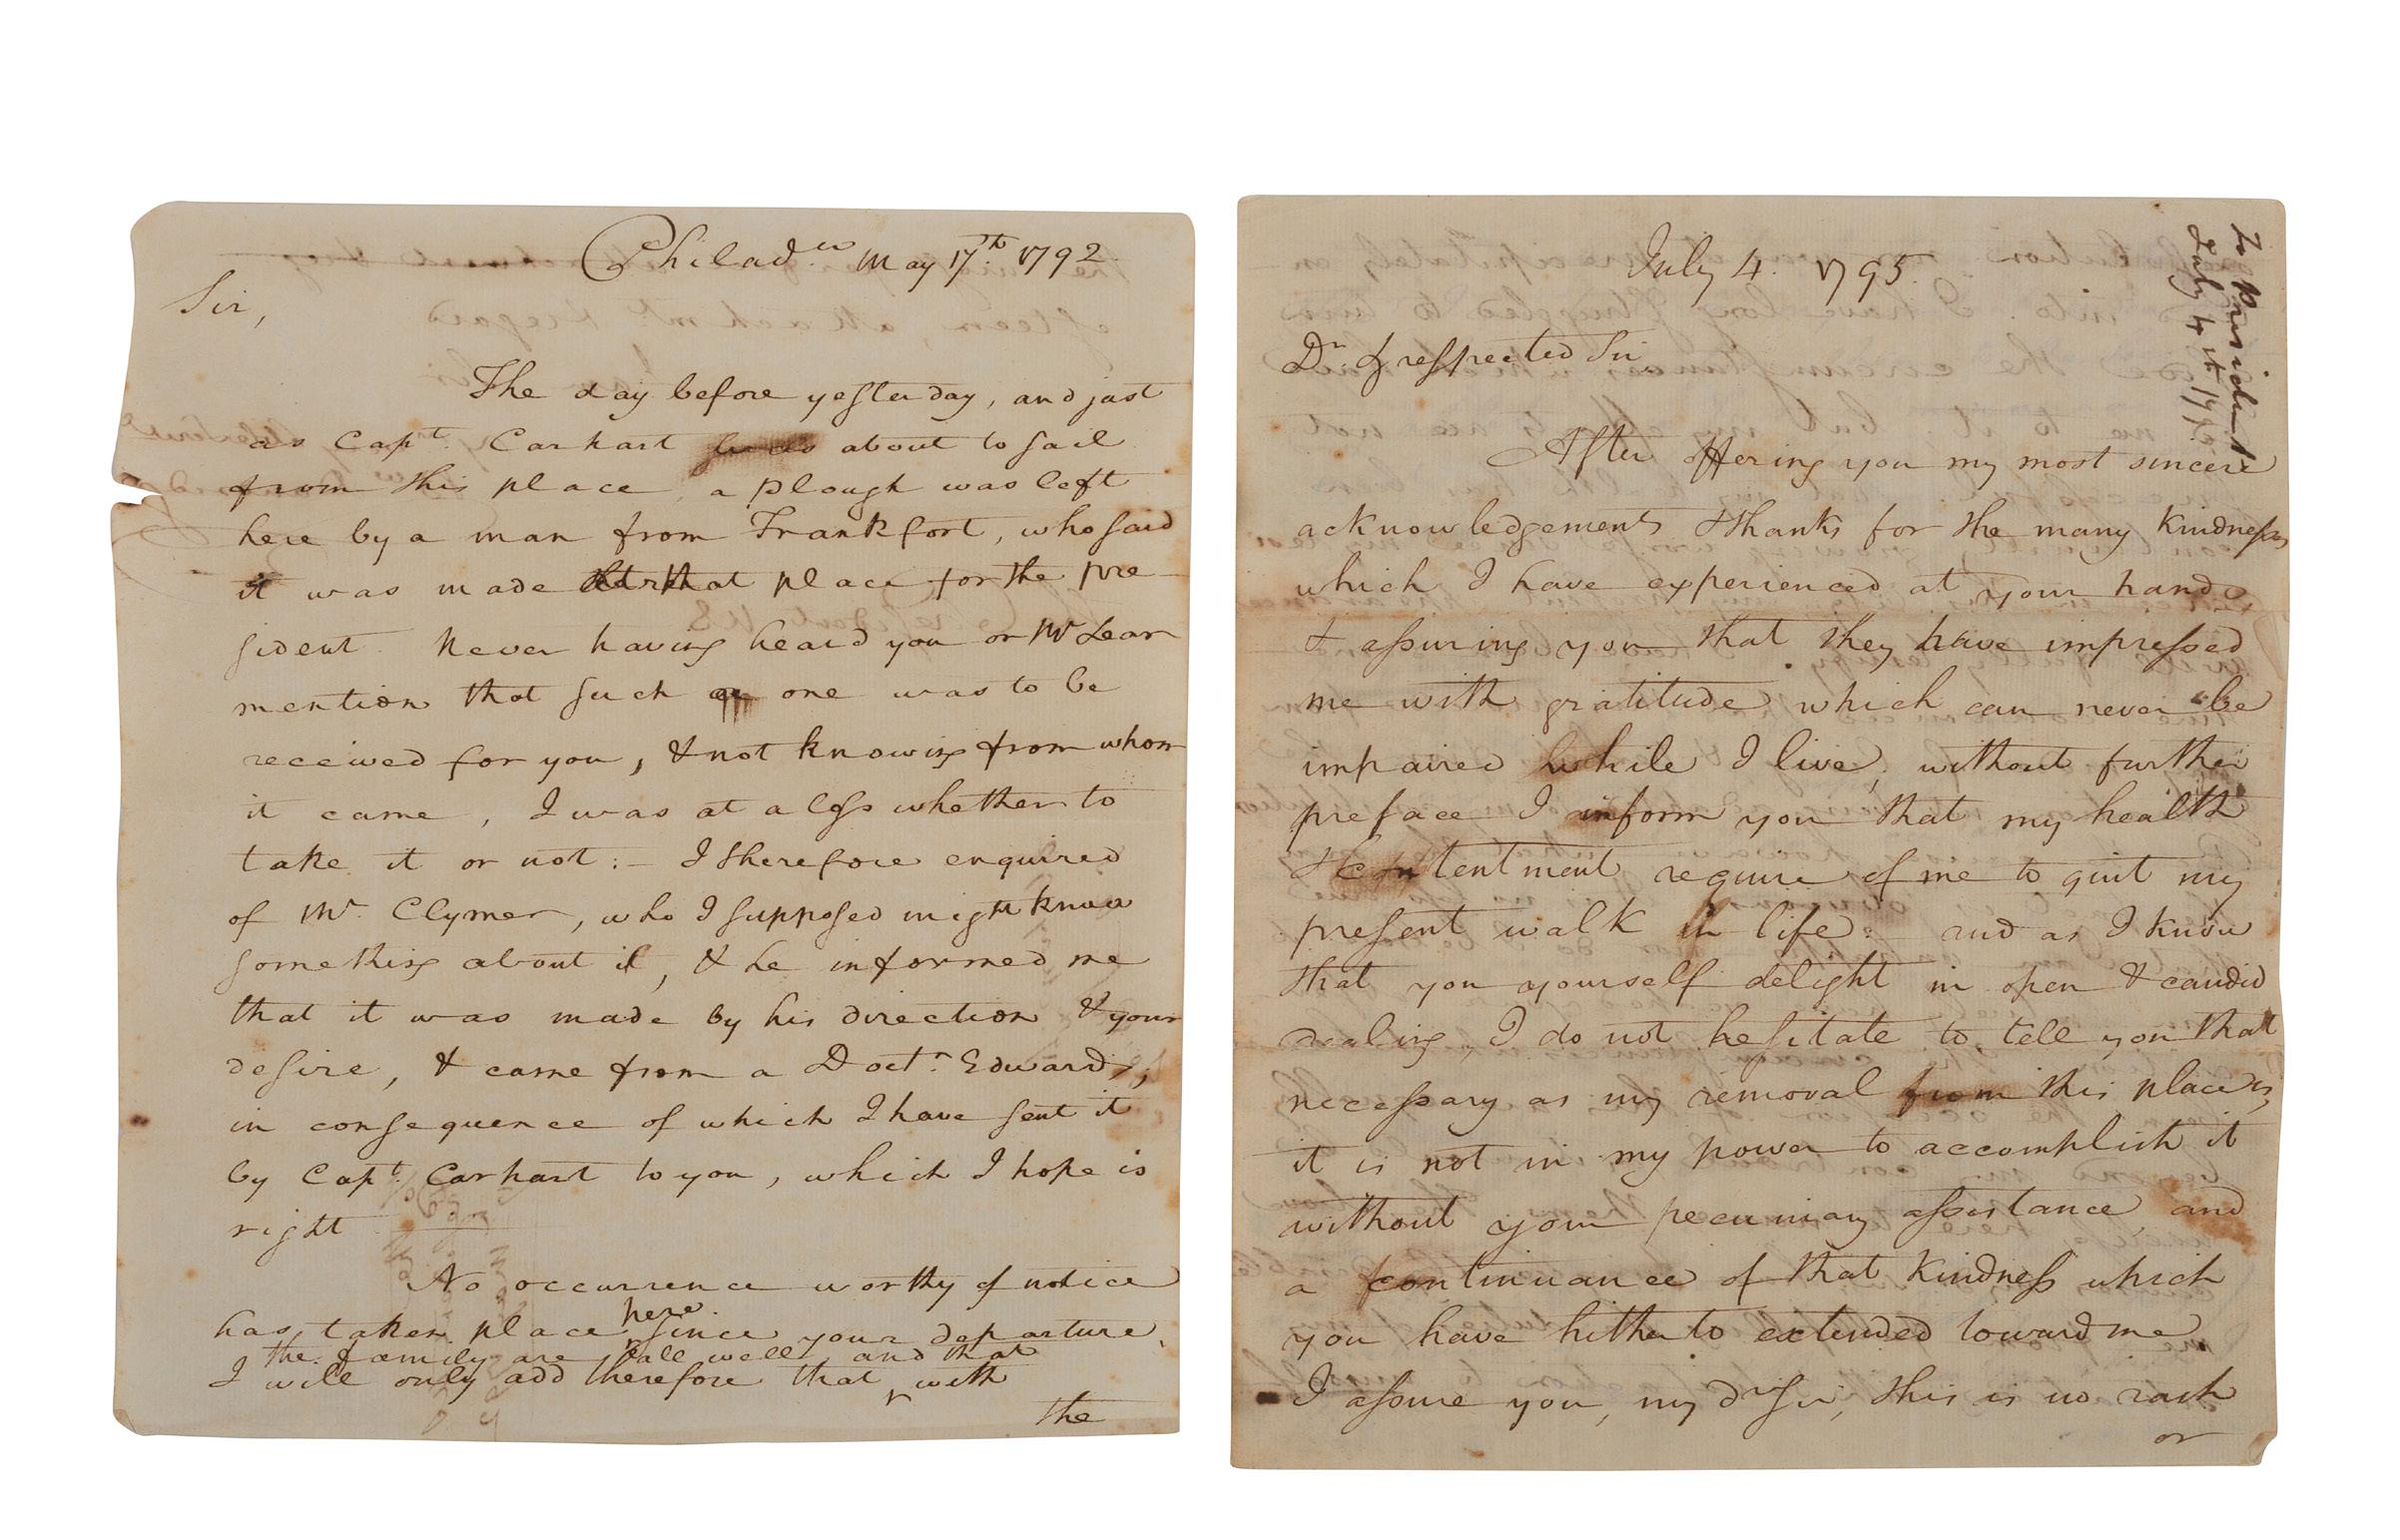 Philad.ia May 17.th 1792.
Sir,
The day before yesterday, and just
as Capt. Carhart was about to sail
from this place, a plough was left
here by a man from Frankfort, who said
it was made at that place for the pre-
sident. Never having heard you or Mr Lear
mention that such an one was to be
received for you, & not knowing from whom
it came, I was at a loss whether to
take it or not:– I therefore enquired
of Mr. Clymer, who I supposed might know
something about it, & he informed me
that it was made by his direction & your
desire, & came from a Doctr. Edwards;
in consequence of which I have sent it
by Capt. Carhart to you, which I hope is
right
No occurrence worthy of notice
has taken place here since your departure,
the family are all well, and that
I will only add therefore that with
the
To President
July 4th 1795
July 4. 1795.
Dr. & respected Sir
After offering you my most sincere
acknowledgements & thanks for the many kindnesses
which I have experienced at your hands,
& assuring you that they have impressed
me with gratitude which can never be
impaired while I live, without further
preface I inform you that my health
& contentment require of me to quit my
present walk in life:– and as I know
that you yourself delight in open & candid
dealing, I do not hesitate to tell you that
necessary as my removal from this place is,
it is not in my power to accomplish it
without your pecuniary assistance and
a continuance of that kindness which
you have hitherto extended toward me
I assure you, my dr Sir, this is no rash
or